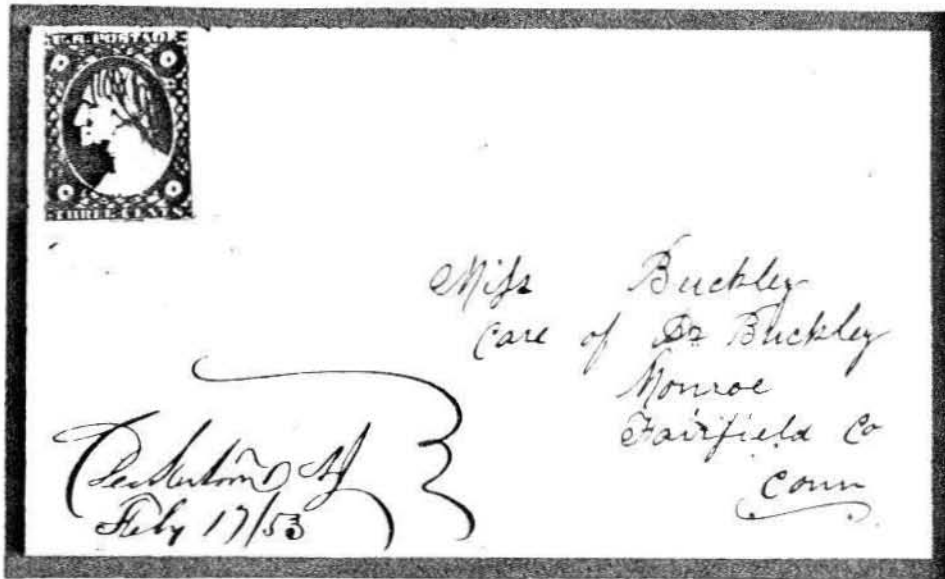 U.S. POSTAGE
THREE CENTS
Miss Buckley
Care of Dr Buckley
Monroe
Fairfield Co
Conn
Feby 17/53